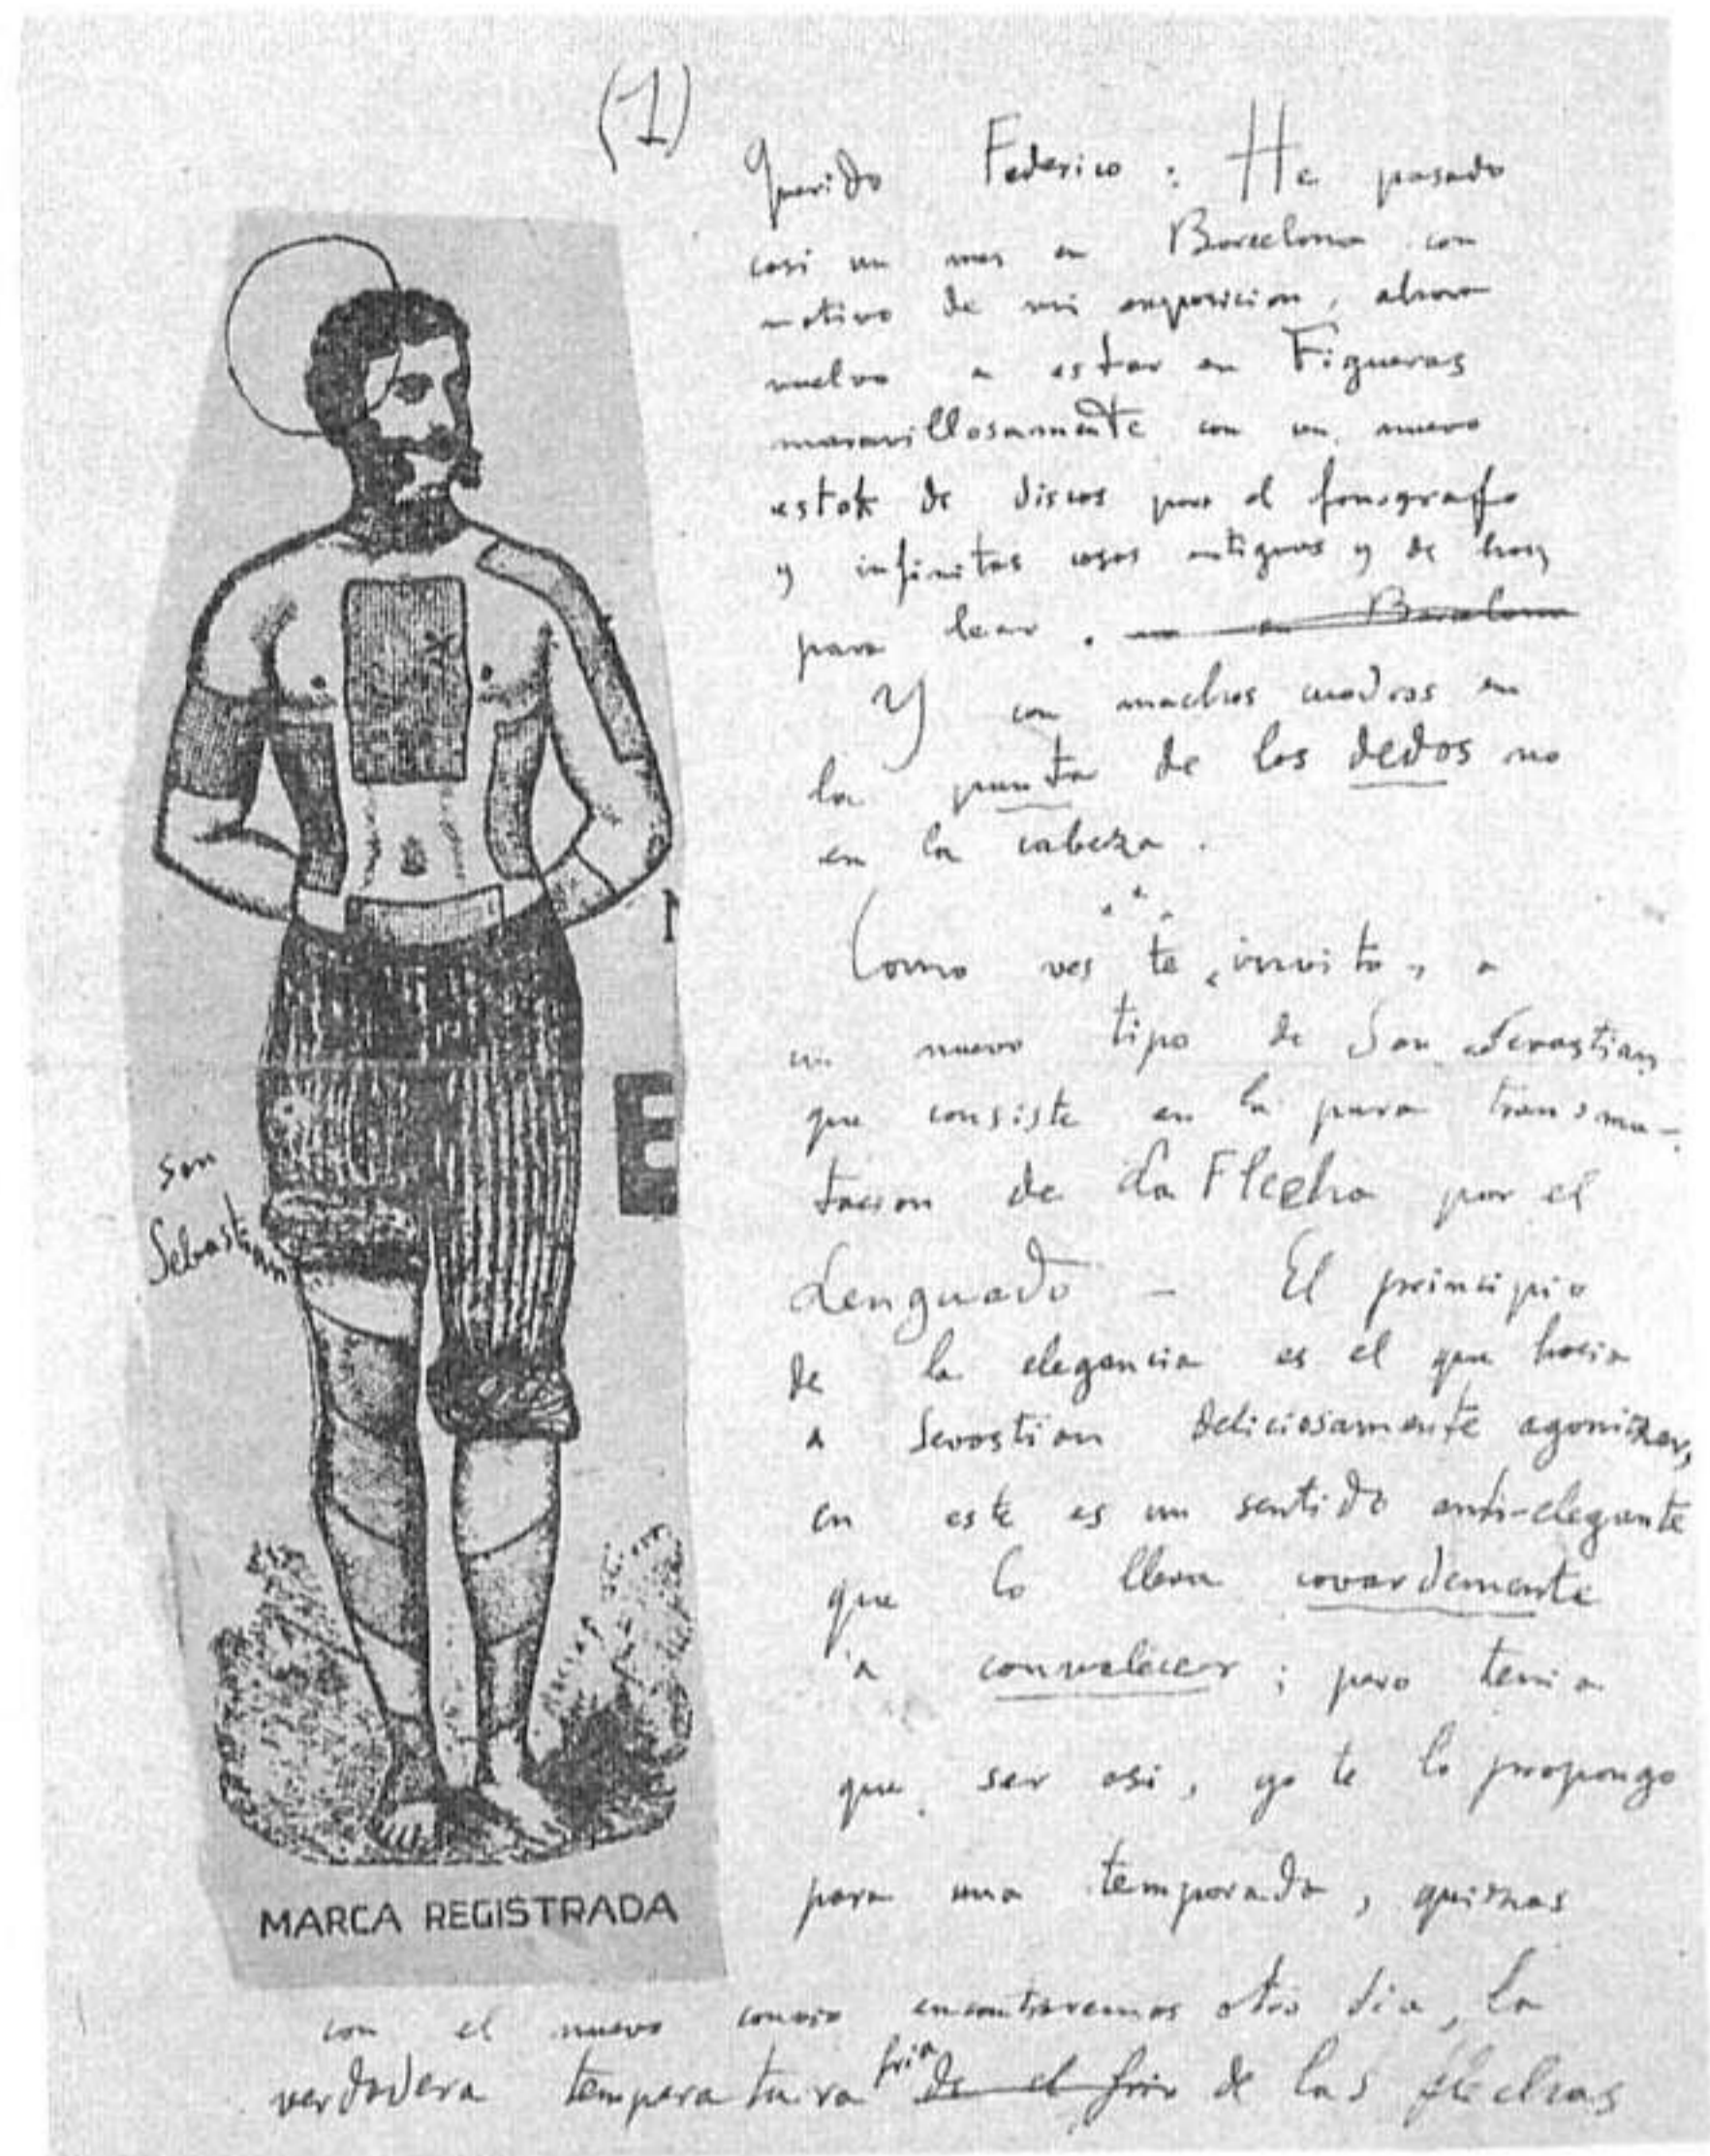 (1)
Querido Federico : He pasado
casi un mes en Barcelona con
motivo de mi exposicion, ahora
vuelvo a estar en Figueras
maravillosamente con un nuevo
estok de discos para el fonografo
y infinitas cosas antiguas y de hoy
para leer . en Barcelona
Y con muchos cuadros en
la punta de los dedos no
en la cabeza .
Como ves te "invito" a
un nuevo tipo de San Sevastian,
que consiste en la pura transmu-
tacion de La Flecha por el
Lenguado - El principio
de la elegancia es el que hacia
a Sevastian deliciosamente agonizar,
en este es un sentido anti-elegante
que lo lleva covardemente
a convalecer ; pero tenia
que ser asi, yo te lo propongo
para una temporada, quizas
con el nuevo encontraremos otro dia, la
verdadera temperatura fria de el frio de las flechas
san
Sebastian
E
MARCA REGISTRADA